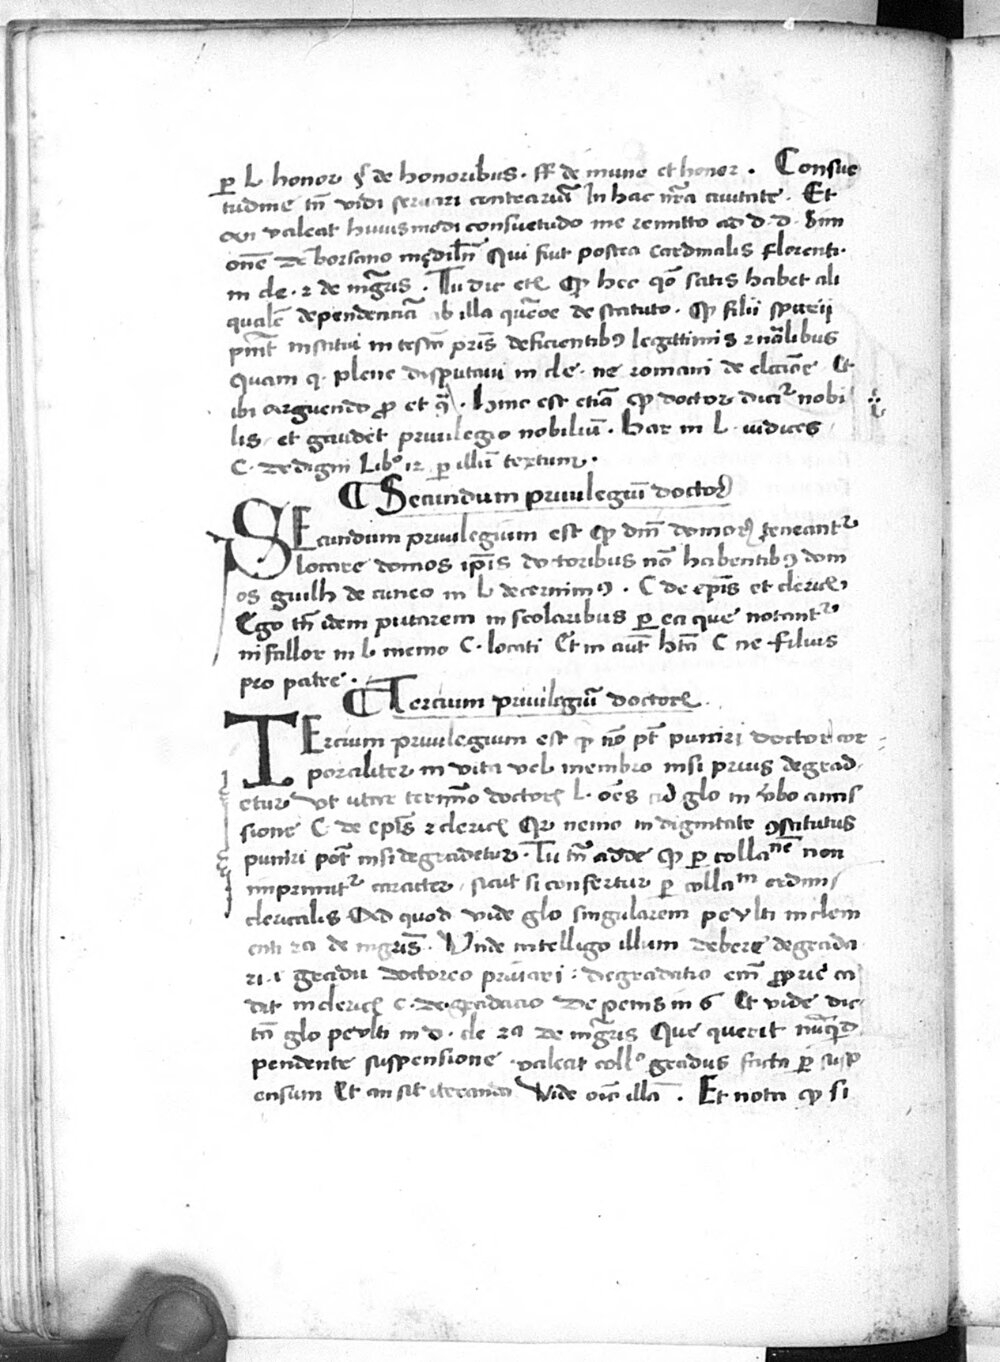 ꝑ L honor § de honoribus. ff de mune et honor. Consue
tudine tn̄ vidi seruari contrariū In hac nr̄a ciuitate. Et
an valeat huiusmodi consuetudo me remitto ad d. d. Sim
onē De borsano medioln̄ Qui fuit postea cardinalis florenti.
in cle. 2 de mgr̄is. Tu dic etc̄ ꝙ hec qō satis habet ali
qualē dependenciā ab illa qōe de statuto. ꝙ filii spurii
pn̄t institui in testō pr̄is deficientibꝰ legittimis 2 nāalibus
Quam q. plene disputaui in cle. ne romani de elcōe Et
ibi arguendo ꝓ et ꝯ. hinc est etiā ꝙ doctor diciꝶ nobi
lis, et gaudet priuilegio nobiliū. har in L. iudices
C. De digni Libº 12 ꝑ illū textum.
¶ Secundum priuilegiū doctoꝝ
SEcundum priuilegium est ꝙ dn̄i domoꝝ teneantꝶ
locare domos ip̄is doctoribus nō habentibꝰ dom
os guilh de cuneo in L decernimꝰ. C de ep̄is et clericꝭ
Ego tn̄ idem putarem in scolaribus ꝑ ea que notantꝶ
ni fallor in L nemo C. locati Et in aut̄ hīta C ne filius
pro patre.
¶ Tercium priuilegiū doctorꝭ
TErcium priuilegium est ꝙ nō pt̄ puniri doctor cor
poraliter in vita vel membro nisi prius degrad
etur Vt utar termīo doctorꝭ L. oēs ad glo in v̄bo amis
sione C. de ep̄is 2 clericꝭ Qꝛ nemo in dignitate ꝯstitutus
puniri pōt nisi degradetur. Tu tn̄ adde ꝙ ꝑ collanē non
imprimitꝶ caracter, sicut si confertur ꝑ collam̄ ordinis
clericalis Ad quod vide glo singularem penulti in clem
enti 2a de mgr̄is. Unde intelligo illum debere degrada
ri. i gradu doctoreo priuari: degradatio em̄ ꝓprie ca
dit in clericꝭ C. De gradacio De penis in 6 Et vide dic
tā glo penulti in d. cle 2a De mgr̄is Que querit nunqͥd
pendente suspensione valeat collº gradus facta ꝑ susp
ensum Et an sit iteranda Vide oīo illā. Et nota ꝙ si